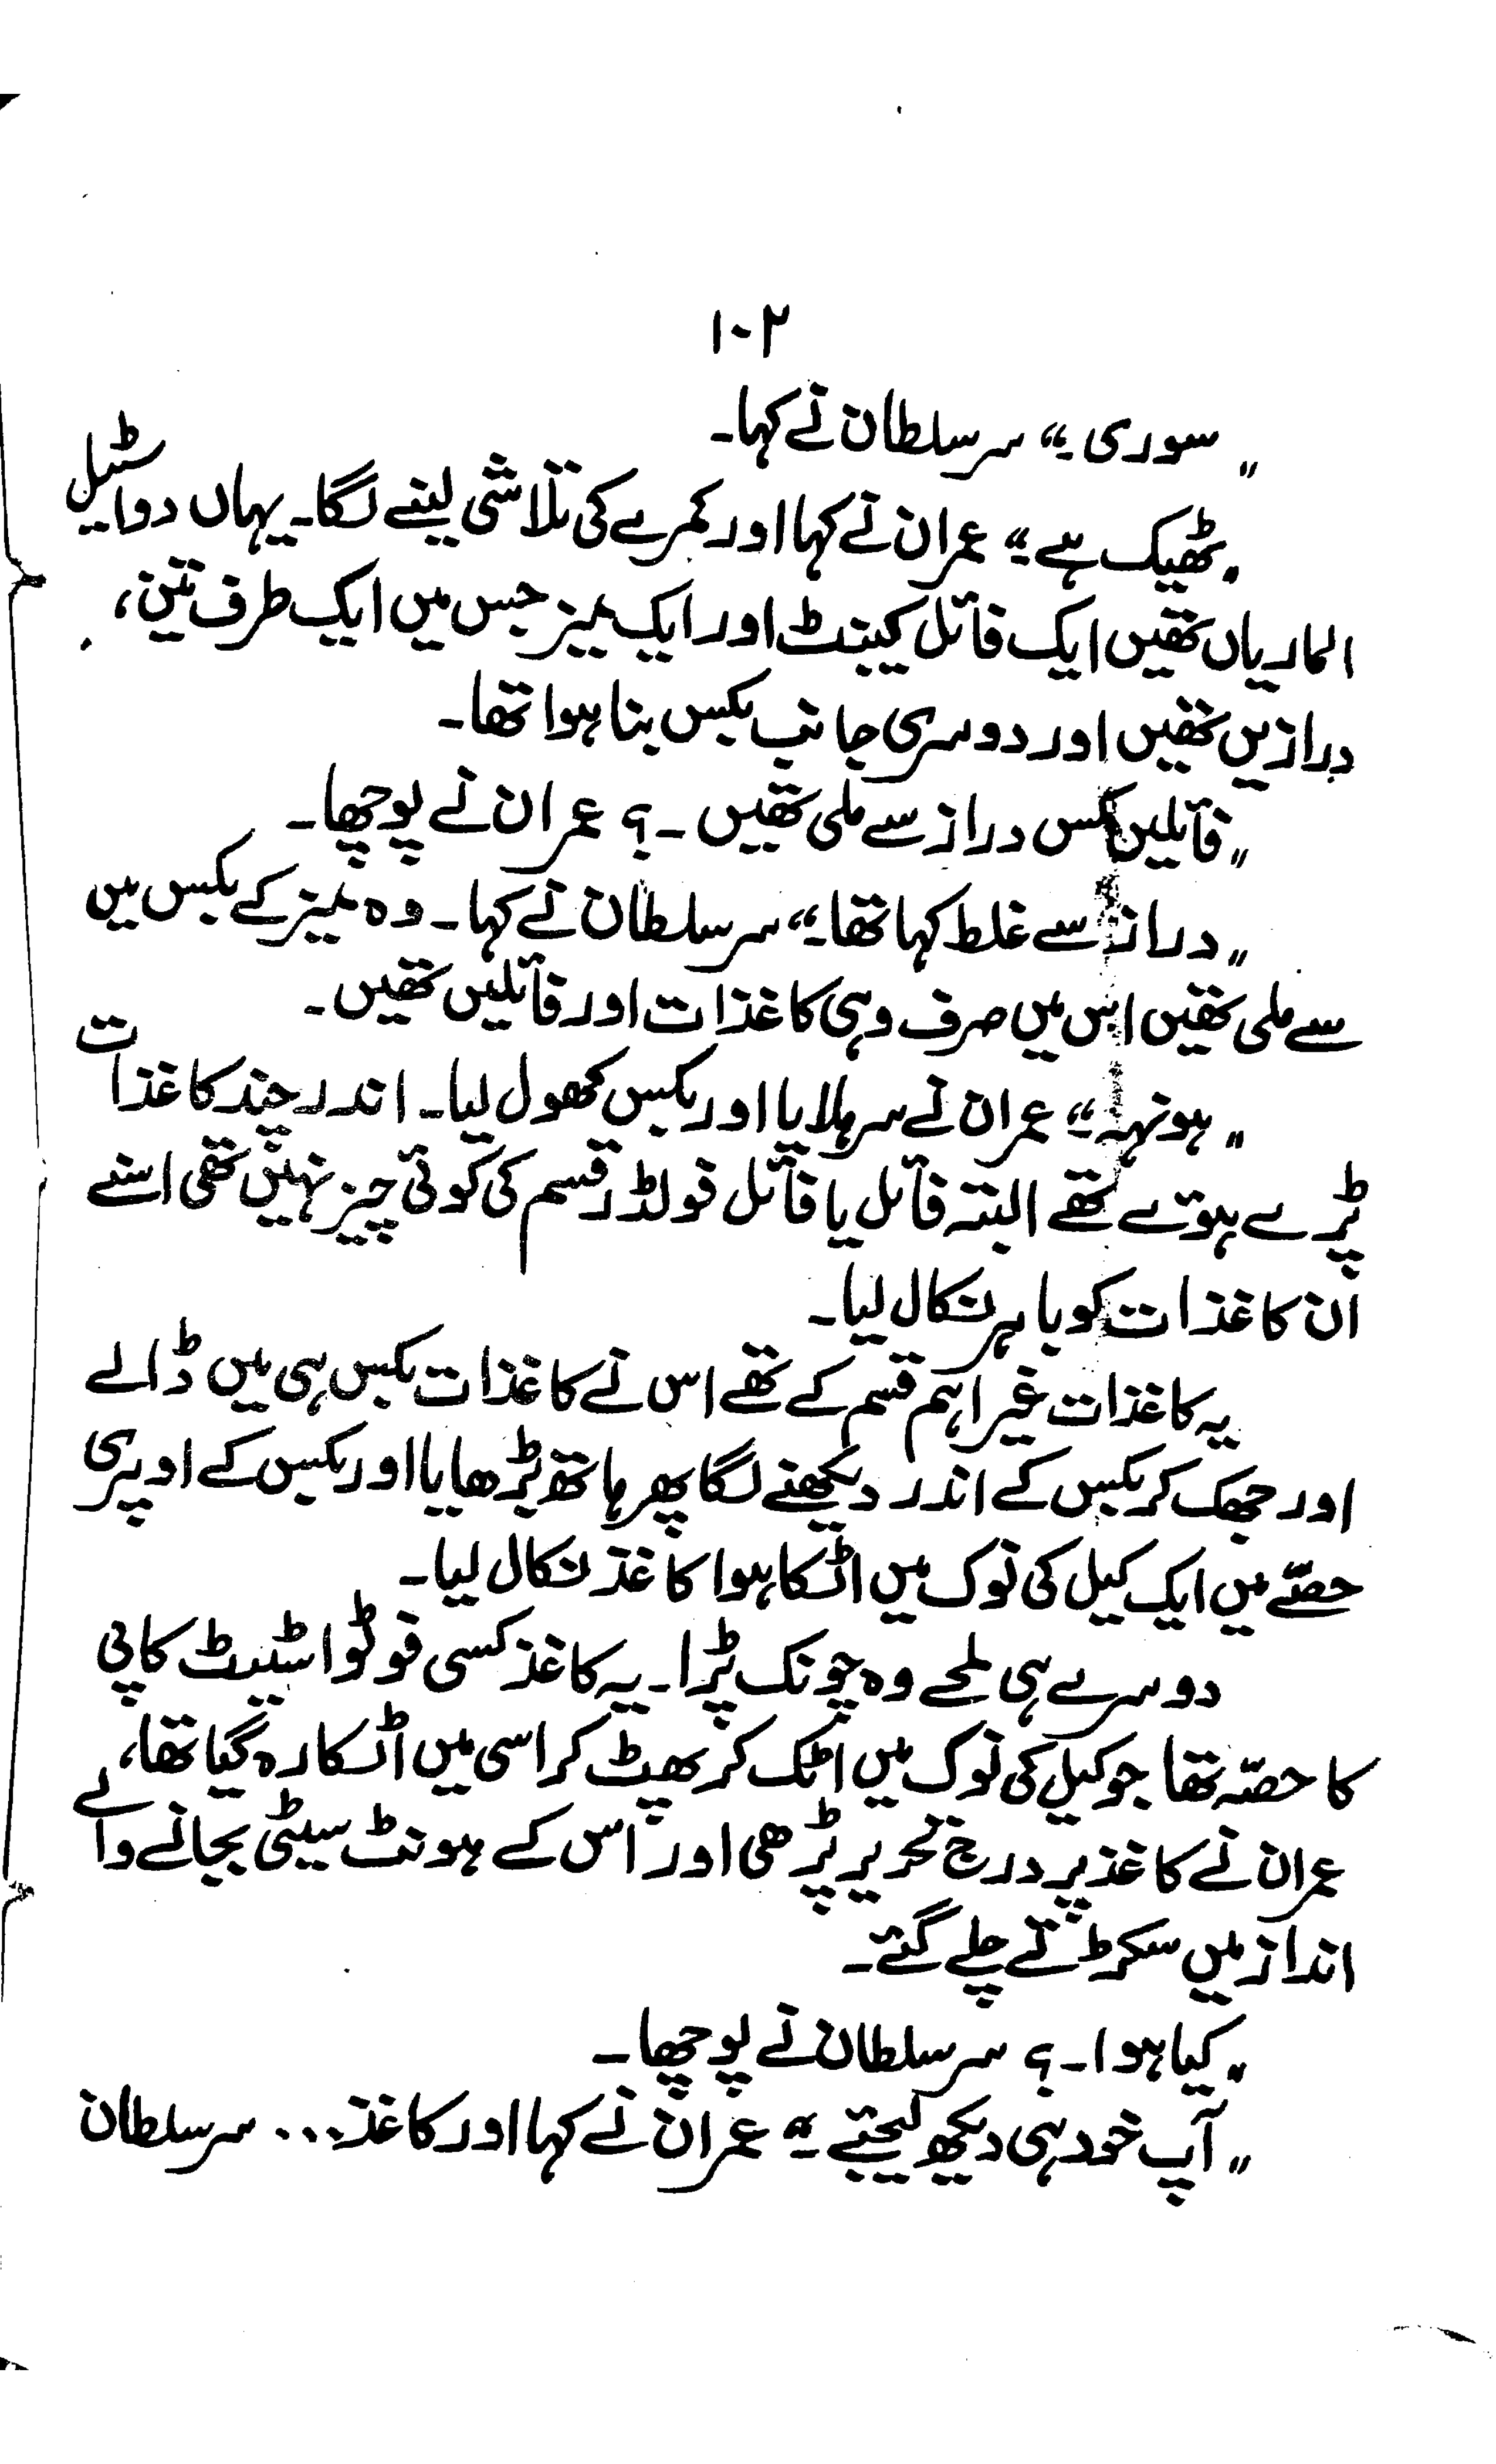 ۱۰۲
"سوری ۔" سر سلطان نے کہا۔
"ٹھیک ہے ۔" عمران نے کہا اور کمرے کی تلاشی لینے لگا۔ یہاں دو اسٹیل
الماریاں تھیں ایک فائل کیبنٹ اور ایک میز جس میں ایک طرف تین،
درازیں تھیں اور دوسری جانب بکس بنا ہوا تھا۔
"فائلیں کس دراز سے ملی تھیں ۔؟ عمران نے پوچھا۔
"دراز سے غلط کہا تھا ۔" سر سلطان نے کہا۔ وہ میز کے بکس میں
سے ملی تھیں اس میں صرف وہی کاغذات اور فائلیں تھیں۔
"ہونہہ ۔" عمران نے سر ہلایا اور بکس کھول لیا۔ اندر چند کاغذات
پڑے ہوئے تھے البتہ فائل یا فائل فولڈر قسم کی کوئی چیز نہیں تھی اسنے
ان کاغذات کو باہر نکال لیا۔
یہ کاغذات غیر اہم قسم کے تھے اس نے کاغذات بکس ہی میں ڈالے
اور جھک کر بکس کے اندر دیکھنے لگا پھر ہاتھ بڑھایا اور بکس کے اوپری
حصّے میں ایک کیل کی نوک میں اٹکا ہوا کاغذ نکال لیا۔
دوسرے ہی لمحے وہ چونک پڑا۔ یہ کاغذ کسی فوٹو اسٹیٹ کاپی
کا حصّہ تھا جو کیل کی نوک میں اٹک کر پھٹ کر اسی میں اٹکا رہ گیا تھا،
عمران نے کاغذ پر درج تحریر پڑھی اور اس کے ہونٹ سیٹی بجانے والے
انداز میں سکڑتے چلے گئے۔
"کیا ہوا ۔؟ سر سلطان نے پوچھا۔
"آپ خود ہی دیکھ لیجئے ۔" عمران نے کہا اور کاغذ... سر سلطان